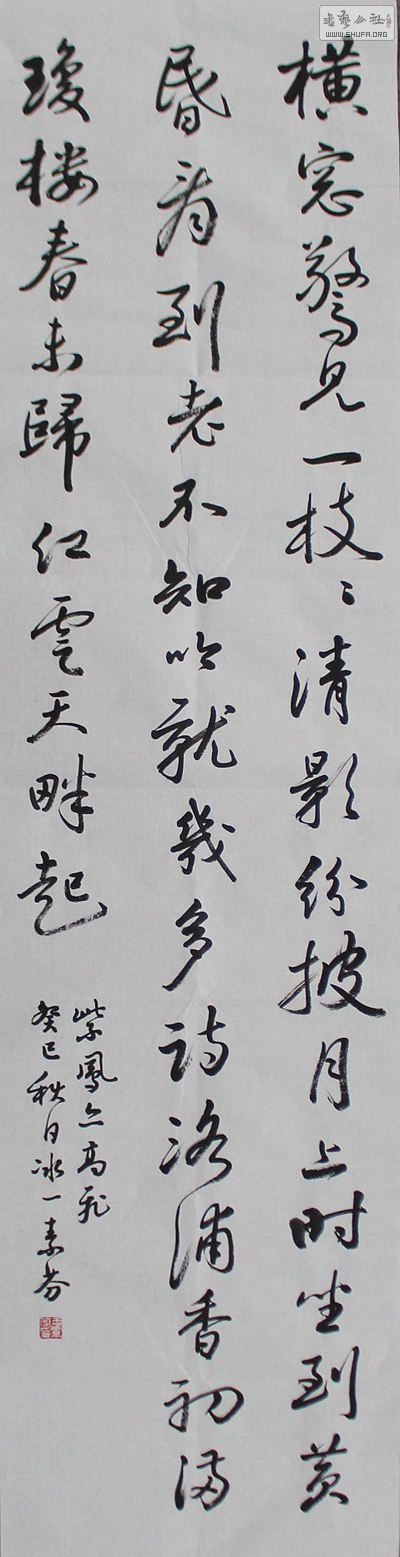 書藝公社
WWW.SHUFA.ORG
橫窓驚見一枝〻清影紛披月上時坐到黃
昏看到老不知吟就幾多詩洛浦香初滿
瓊樓春未歸紅雲天畔起
紫鳳亦高飛
癸巳秋日冰一素芬